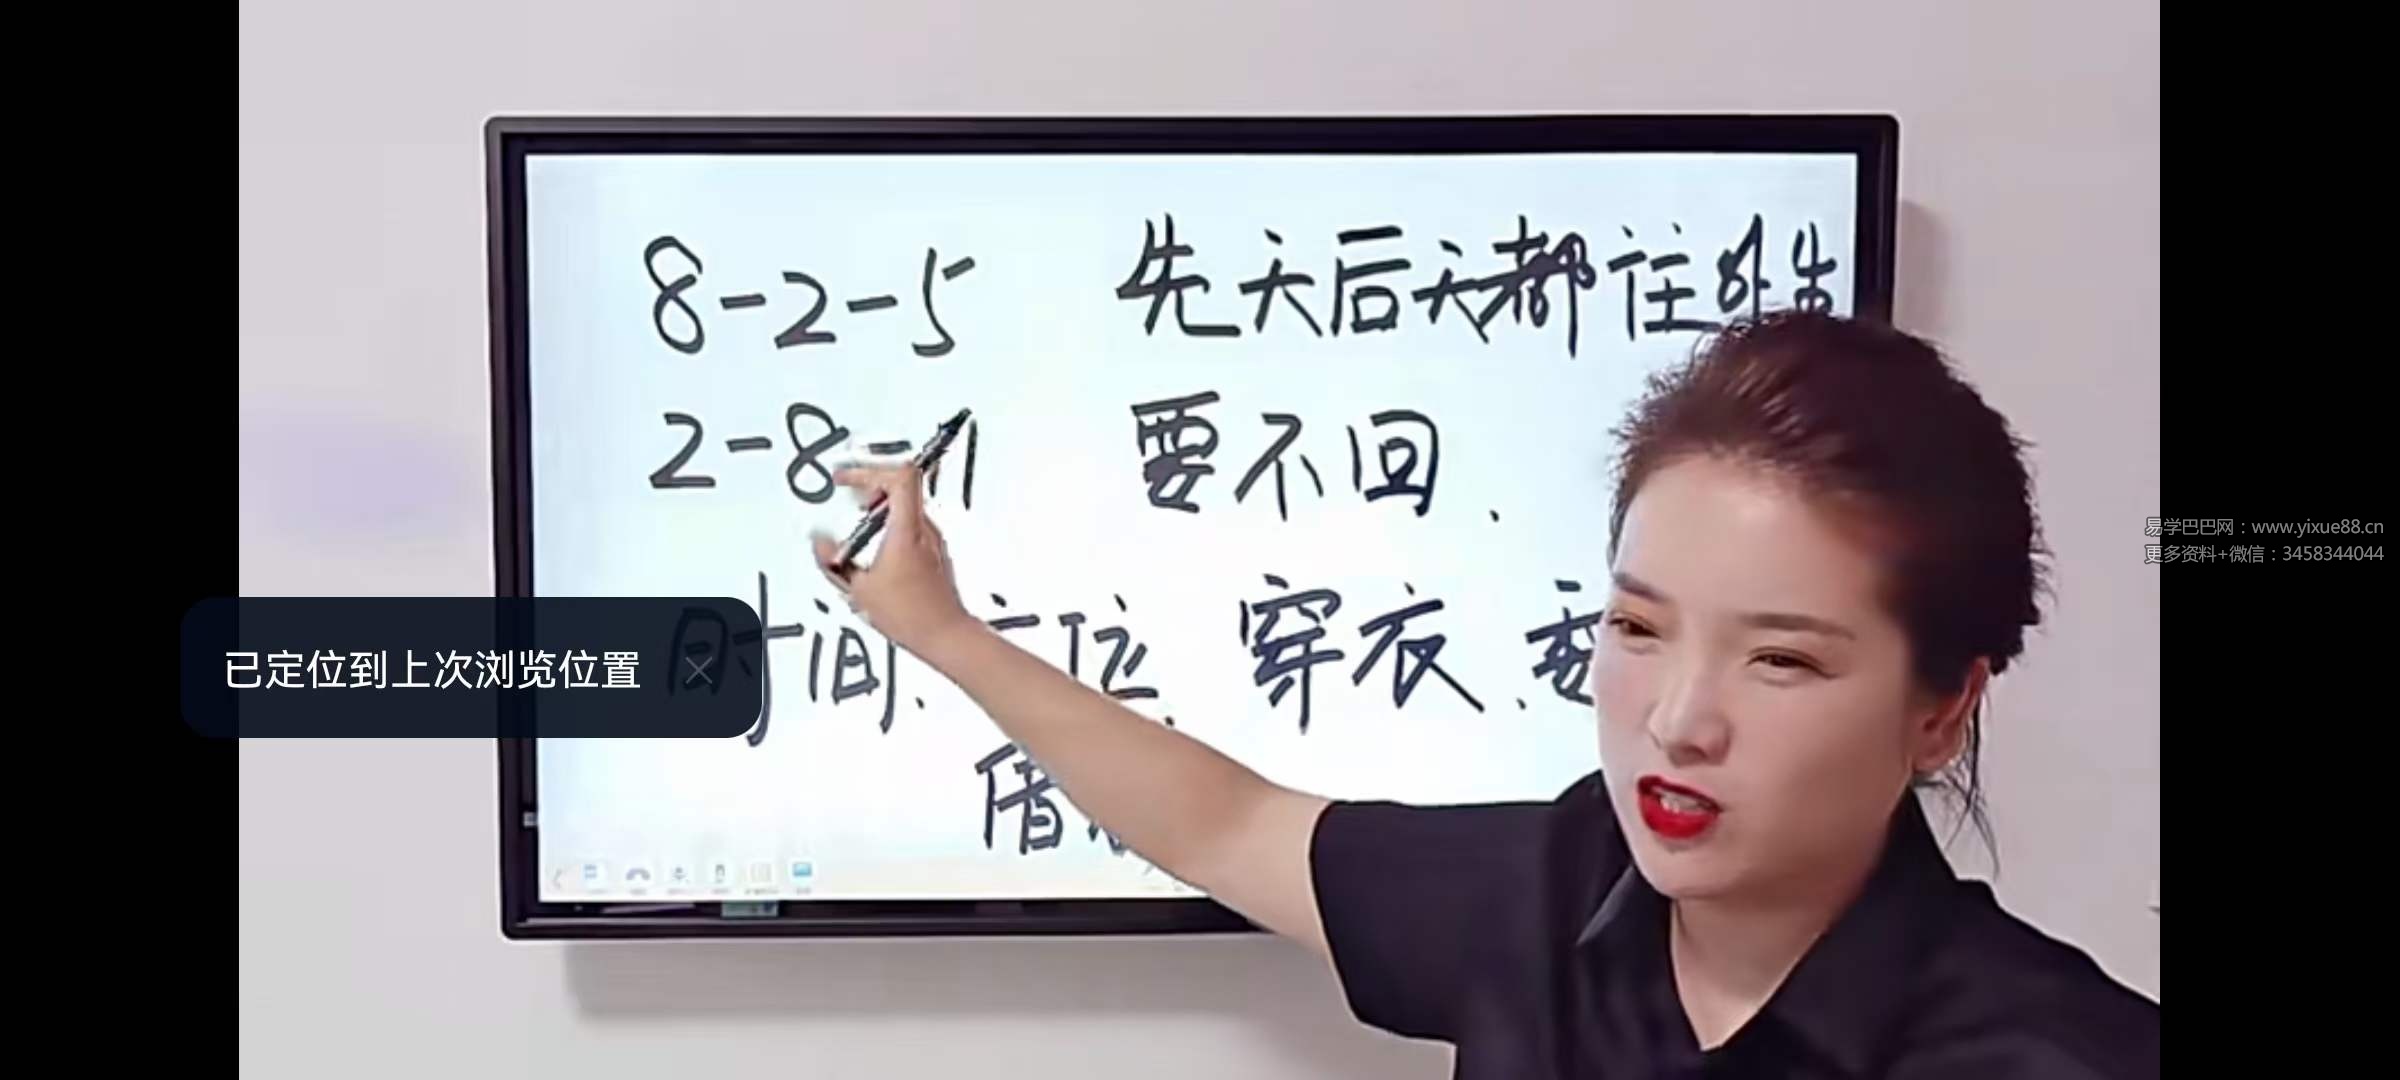 8-2-5 先天后天都住外
2-8-11 要不回.
时间、方位、穿衣、
借
已定位到上次浏览位置 ×
易学巴巴网：www.yixue88.cn
更多资料+微信：3458344044